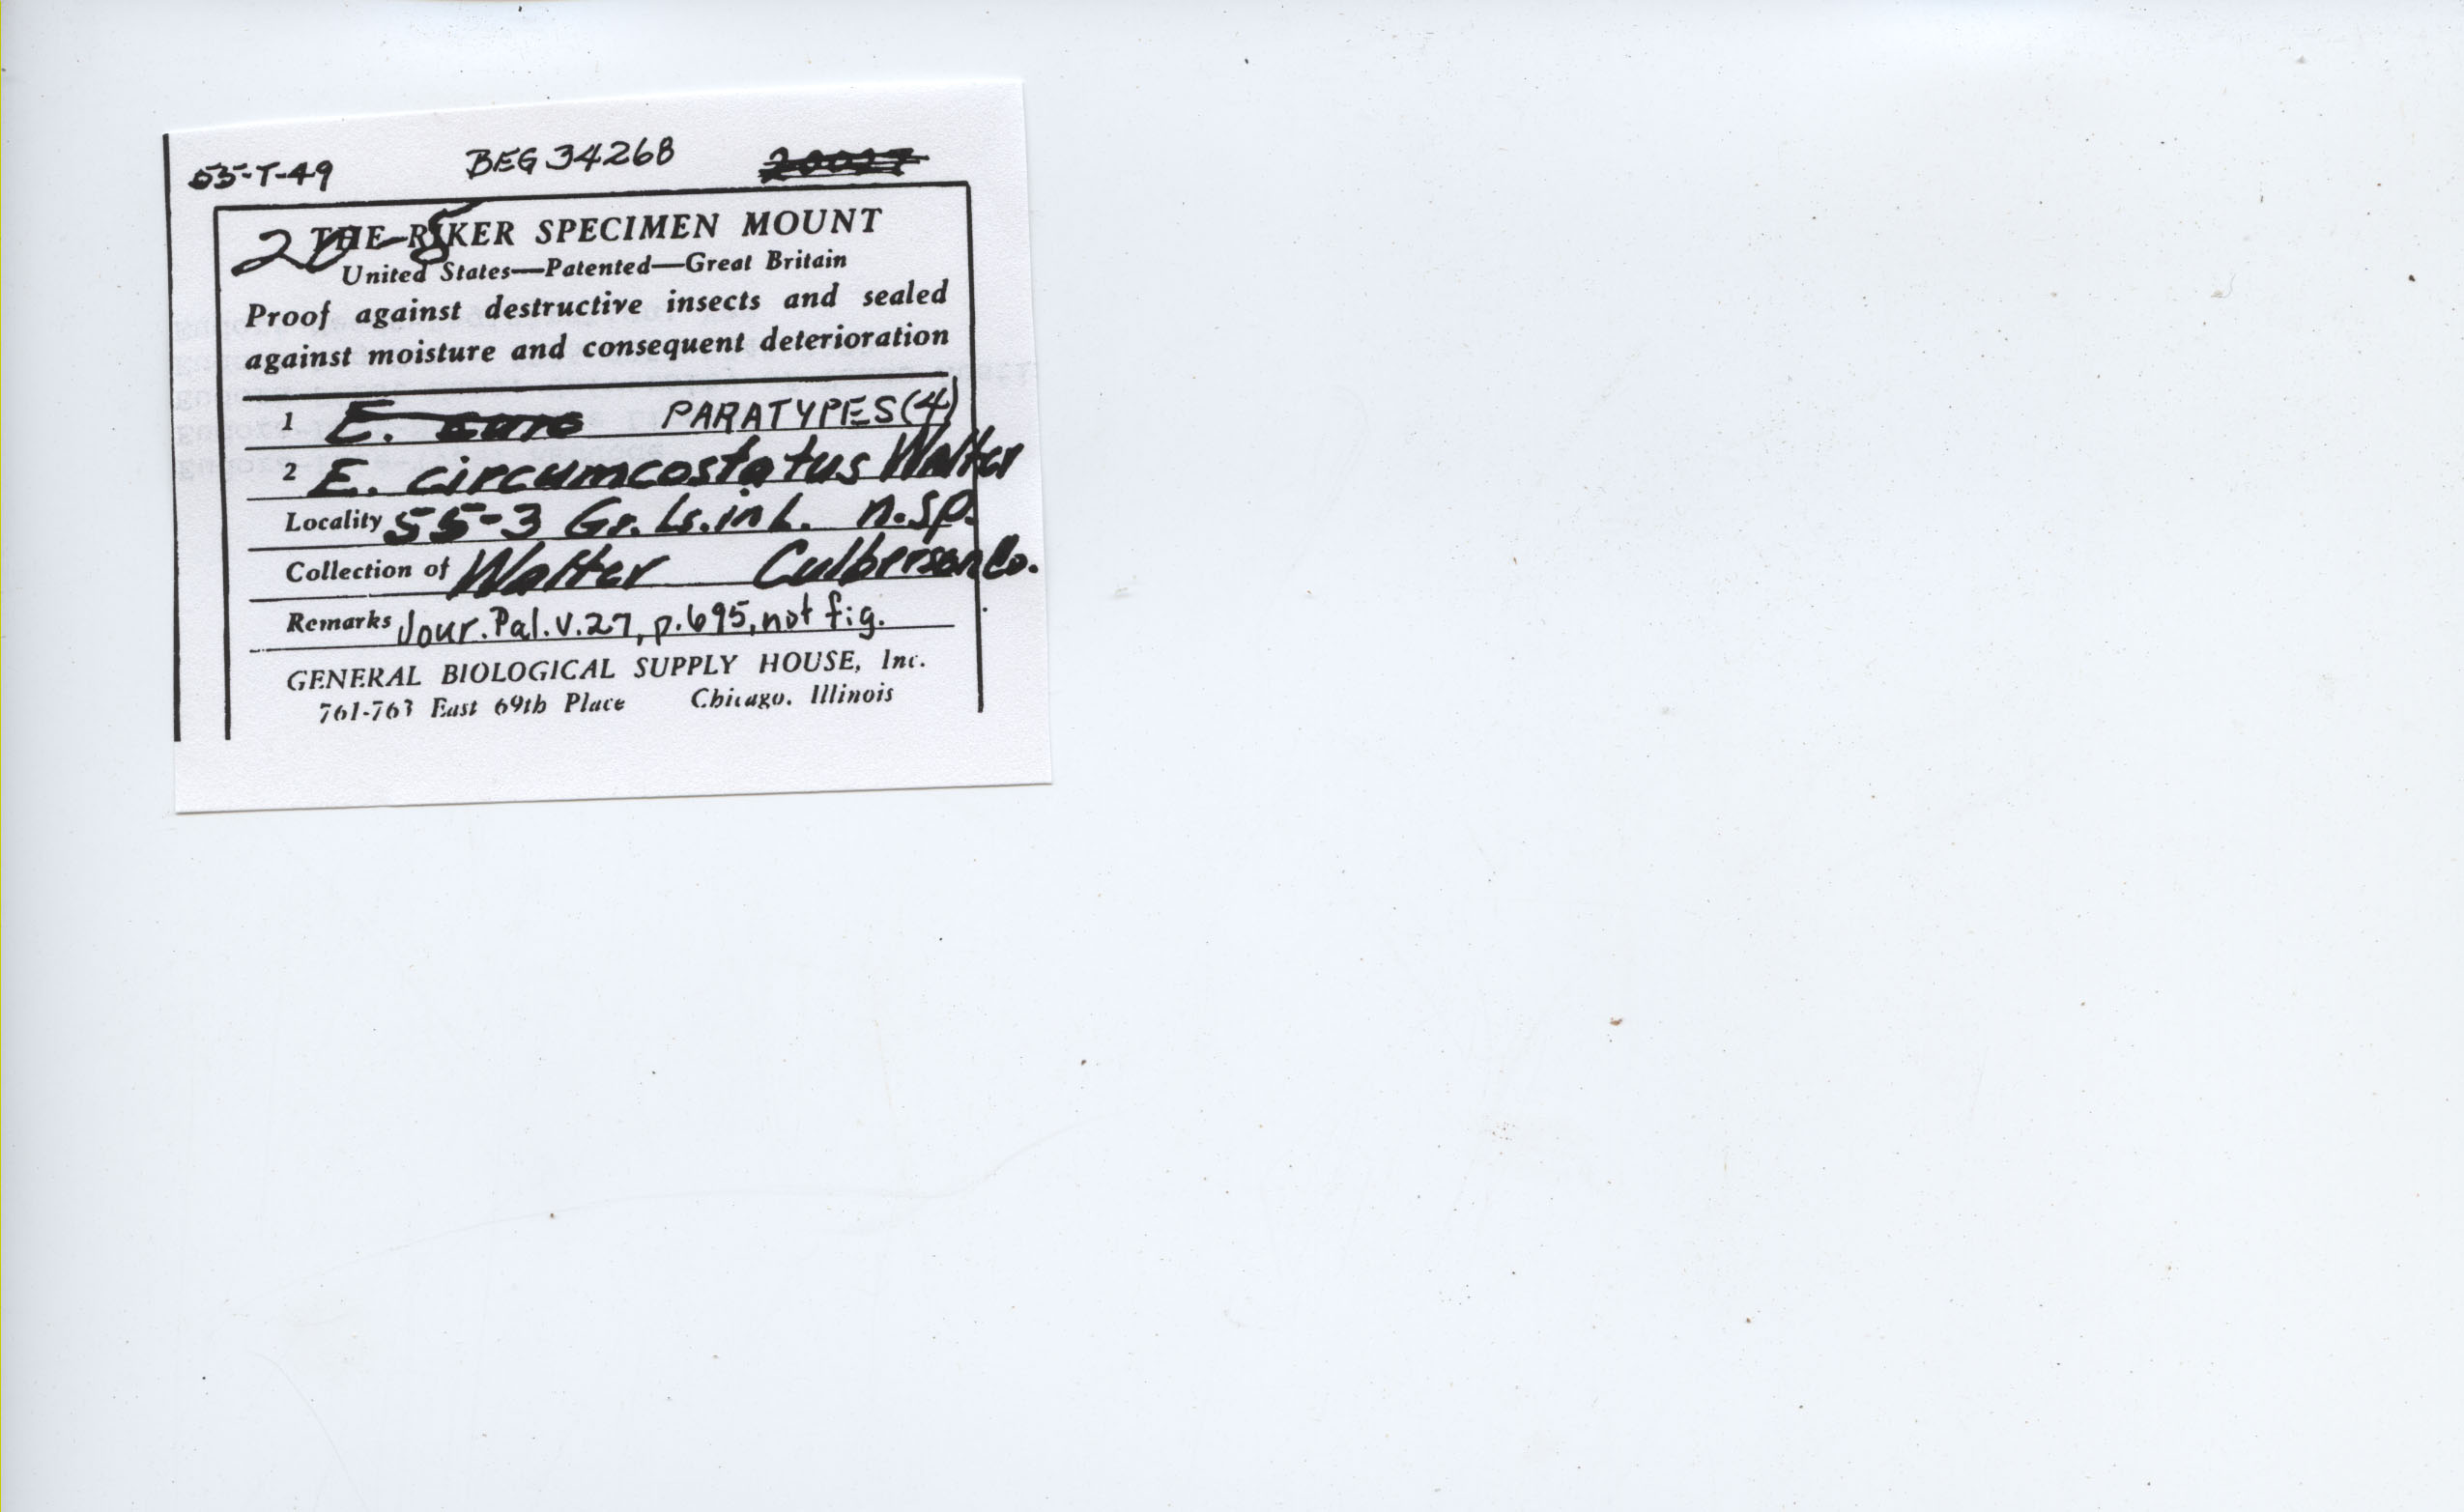 55-T-49 BEG 34268 20027
20-5
THE RIKER SPECIMEN MOUNT
United States—Patented—Great Britain
Proof against destructive insects and sealed
against moisture and consequent deterioration
1 E. PARATYPES(4)
2 E. circumcostatus Walter
Locality 55-3 Gr. Ls. in L. n.sp.
Collection of Walter Culberson Co.
Remarks Jour. Pal. v.27, p.695, not fig.
GENERAL BIOLOGICAL SUPPLY HOUSE, Inc.
761-763 East 69th Place Chicago, Illinois